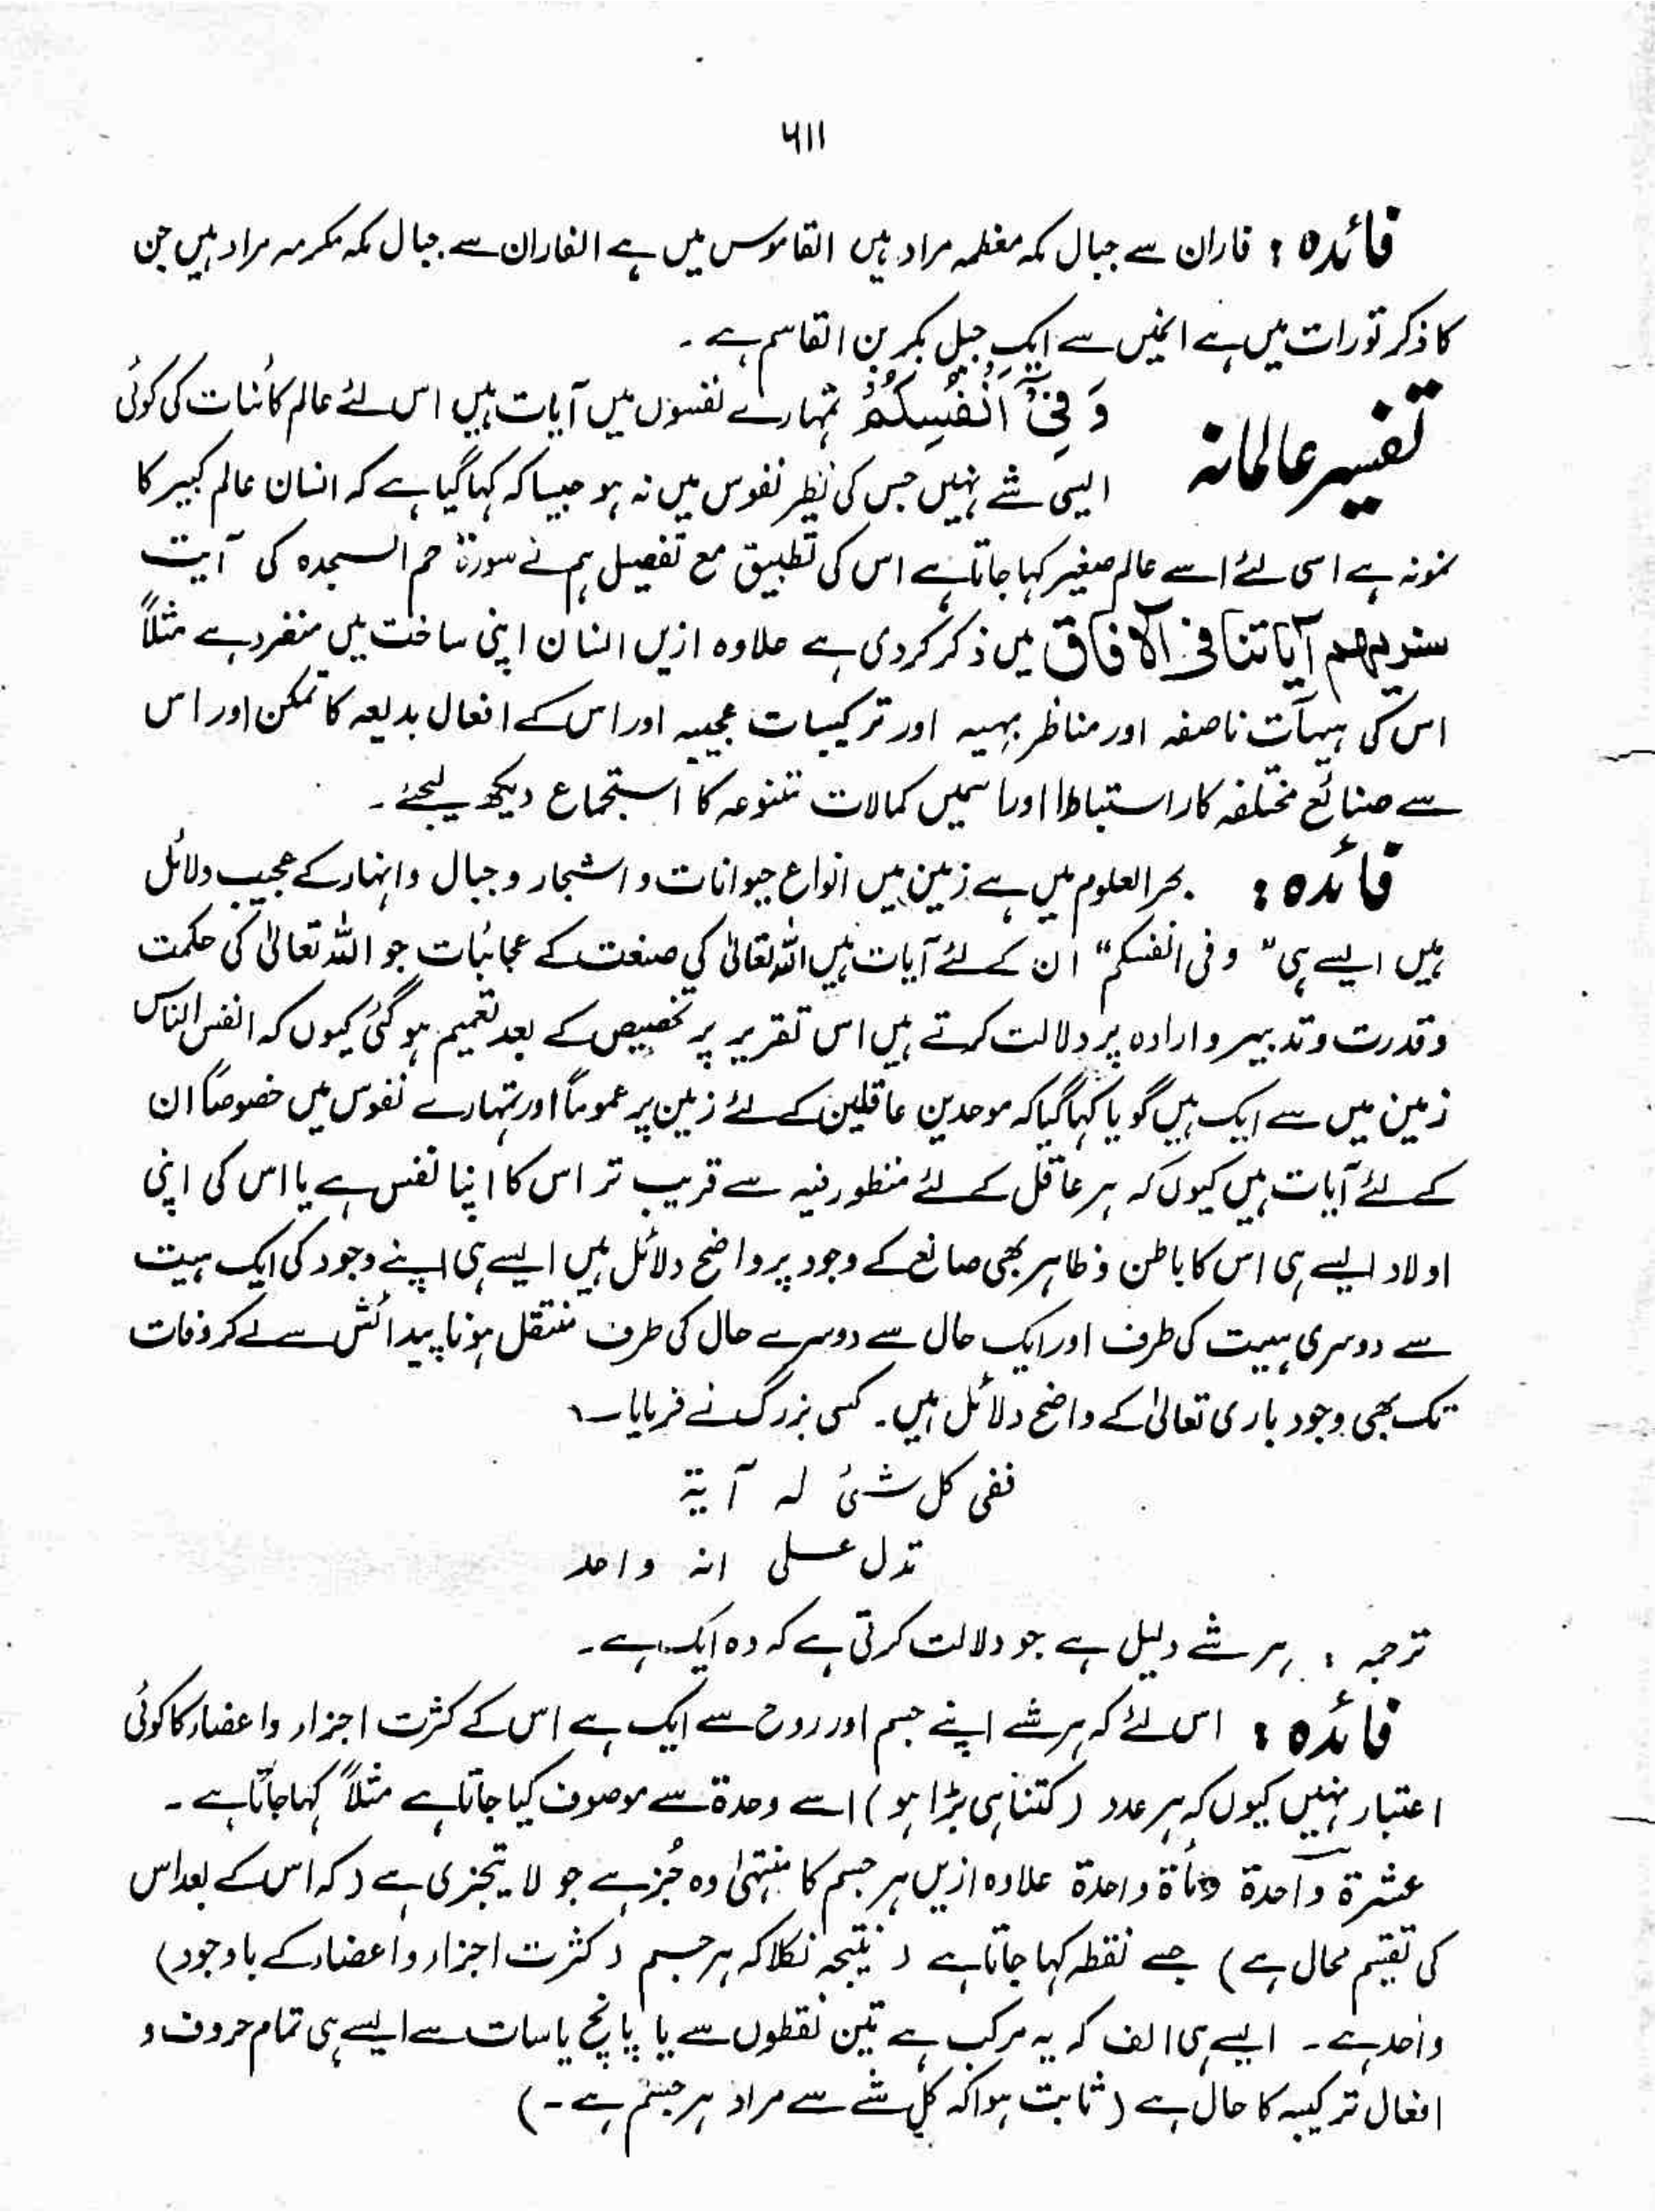 ۶۱۱
فائدہ : فاران سے جبال مکہ معظمہ مراد ہیں القاموس میں ہے الفاران سے جبال مکہ مکرمہ مراد ہیں جن
کا ذکر تورات میں ہے انہیں سے ایک جبل بکر بن القاسم ہے ۔
تفسیر عالمانہ
وَ فِیْۤ اَنْفُسِکُمْ تمہارے نفسوں میں آیات ہیں اس لئے عالم کائنات کی کوئی
ایسی شے نہیں جس کی نظیر نفوس میں نہ ہو جیسا کہ کہا گیا ہے کہ انسان عالم کبیر کا
نمونہ ہے اسی لئے اسے عالم صغیر کہا جاتا ہے اس کی تطبیق مع تفصیل ہم نے سورۃ حم السجدہ کی آیت
سنریھم آیاتنا فی الآفاق میں ذکر کردی ہے علاوہ ازیں انسان اپنی ساخت میں منفرد ہے مثلاً
اس کی ہیآت ناصفہ اور مناظر بہیہ اور ترکیبات عجیبہ اور اس کے افعال بدیعہ کا تمکن اور اس
سے صنائع مختلفہ کا استنباط اور اسمیں کمالات متنوعہ کا استجماع دیکھ لیجئے ۔
فائدہ : بحر العلوم میں ہے زمین میں انواع حیوانات و اشجار و جبال وانہار کے عجیب دلائل
ہیں ایسے ہی " وفی انفسکم" ان کے لئے آیات ہیں اللہ تعالیٰ کی صنعت کے عجائبات جو اللہ تعالیٰ کی حکمت
وقدرت وتدبیر وارادہ پر دلالت کرتے ہیں اس تقریر پر تخصیص کے بعد تعمیم ہوگئی کیوں کہ انفس الناس
زمین میں سے ایک ہیں گویا کہا گیا کہ موحدین عاقلین کے لئے زمین پر عموماً اور تمہارے نفوس میں خصوصاً ان
کے لئے آیات ہیں کیوں کہ ہر عاقل کے لئے منظور فیہ سے قریب تر اس کا اپنا نفس ہے یا اس کی اپنی
اولاد ایسے ہی اس کا باطن وظاہر بھی صانع کے وجود پر واضح دلائل ہیں ایسے ہی اپنے وجود کی ایک ہیت
سے دوسری ہیت کی طرف اور ایک حال سے دوسرے حال کی طرف منتقل ہونا پیدائش سے لے کر وفات
تک بھی وجود باری تعالیٰ کے واضح دلائل ہیں۔ کسی بزرگ نے فرمایا ؎
ففی کل شئ لہ آیۃ
تدل علی انہ واحد
ترجمہ : ہر شے دلیل ہے جو دلالت کرتی ہے کہ وہ ایک ہے ۔
فائدہ : اس لئے کہ ہر شے اپنے جسم اور روح سے ایک ہے اس کے کثرت اجزاء واعضاء کا کوئی
اعتبار نہیں کیوں کہ ہر عدد (کتنا ہی بڑا ہو) اسے وحدۃ سے موصوف کیا جاتا ہے مثلاً کہا جاتا ہے ۔
عشرۃ واحدۃ ومأۃ واحدۃ علاوہ ازیں ہر جسم کا منتہیٰ وہ جُز ہے جو لا یتجزی ہے (کہ اس کے بعد اس
کی تقیسم محال ہے) جسے نقطہ کہا جاتا ہے (نتیجہ نکلا کہ ہر جسم (کثرت اجزاء واعضاء کے باوجود)
واحد ہے ۔ ایسے ہی الف کہ یہ مرکب ہے تین نقطوں سے یا پانچ یا سات سے ایسے ہی تمام حروف و
افعال ترکیبہ کا حال ہے (ثابت ہوا کہ کل شے سے مراد ہر جسم ہے ۔)